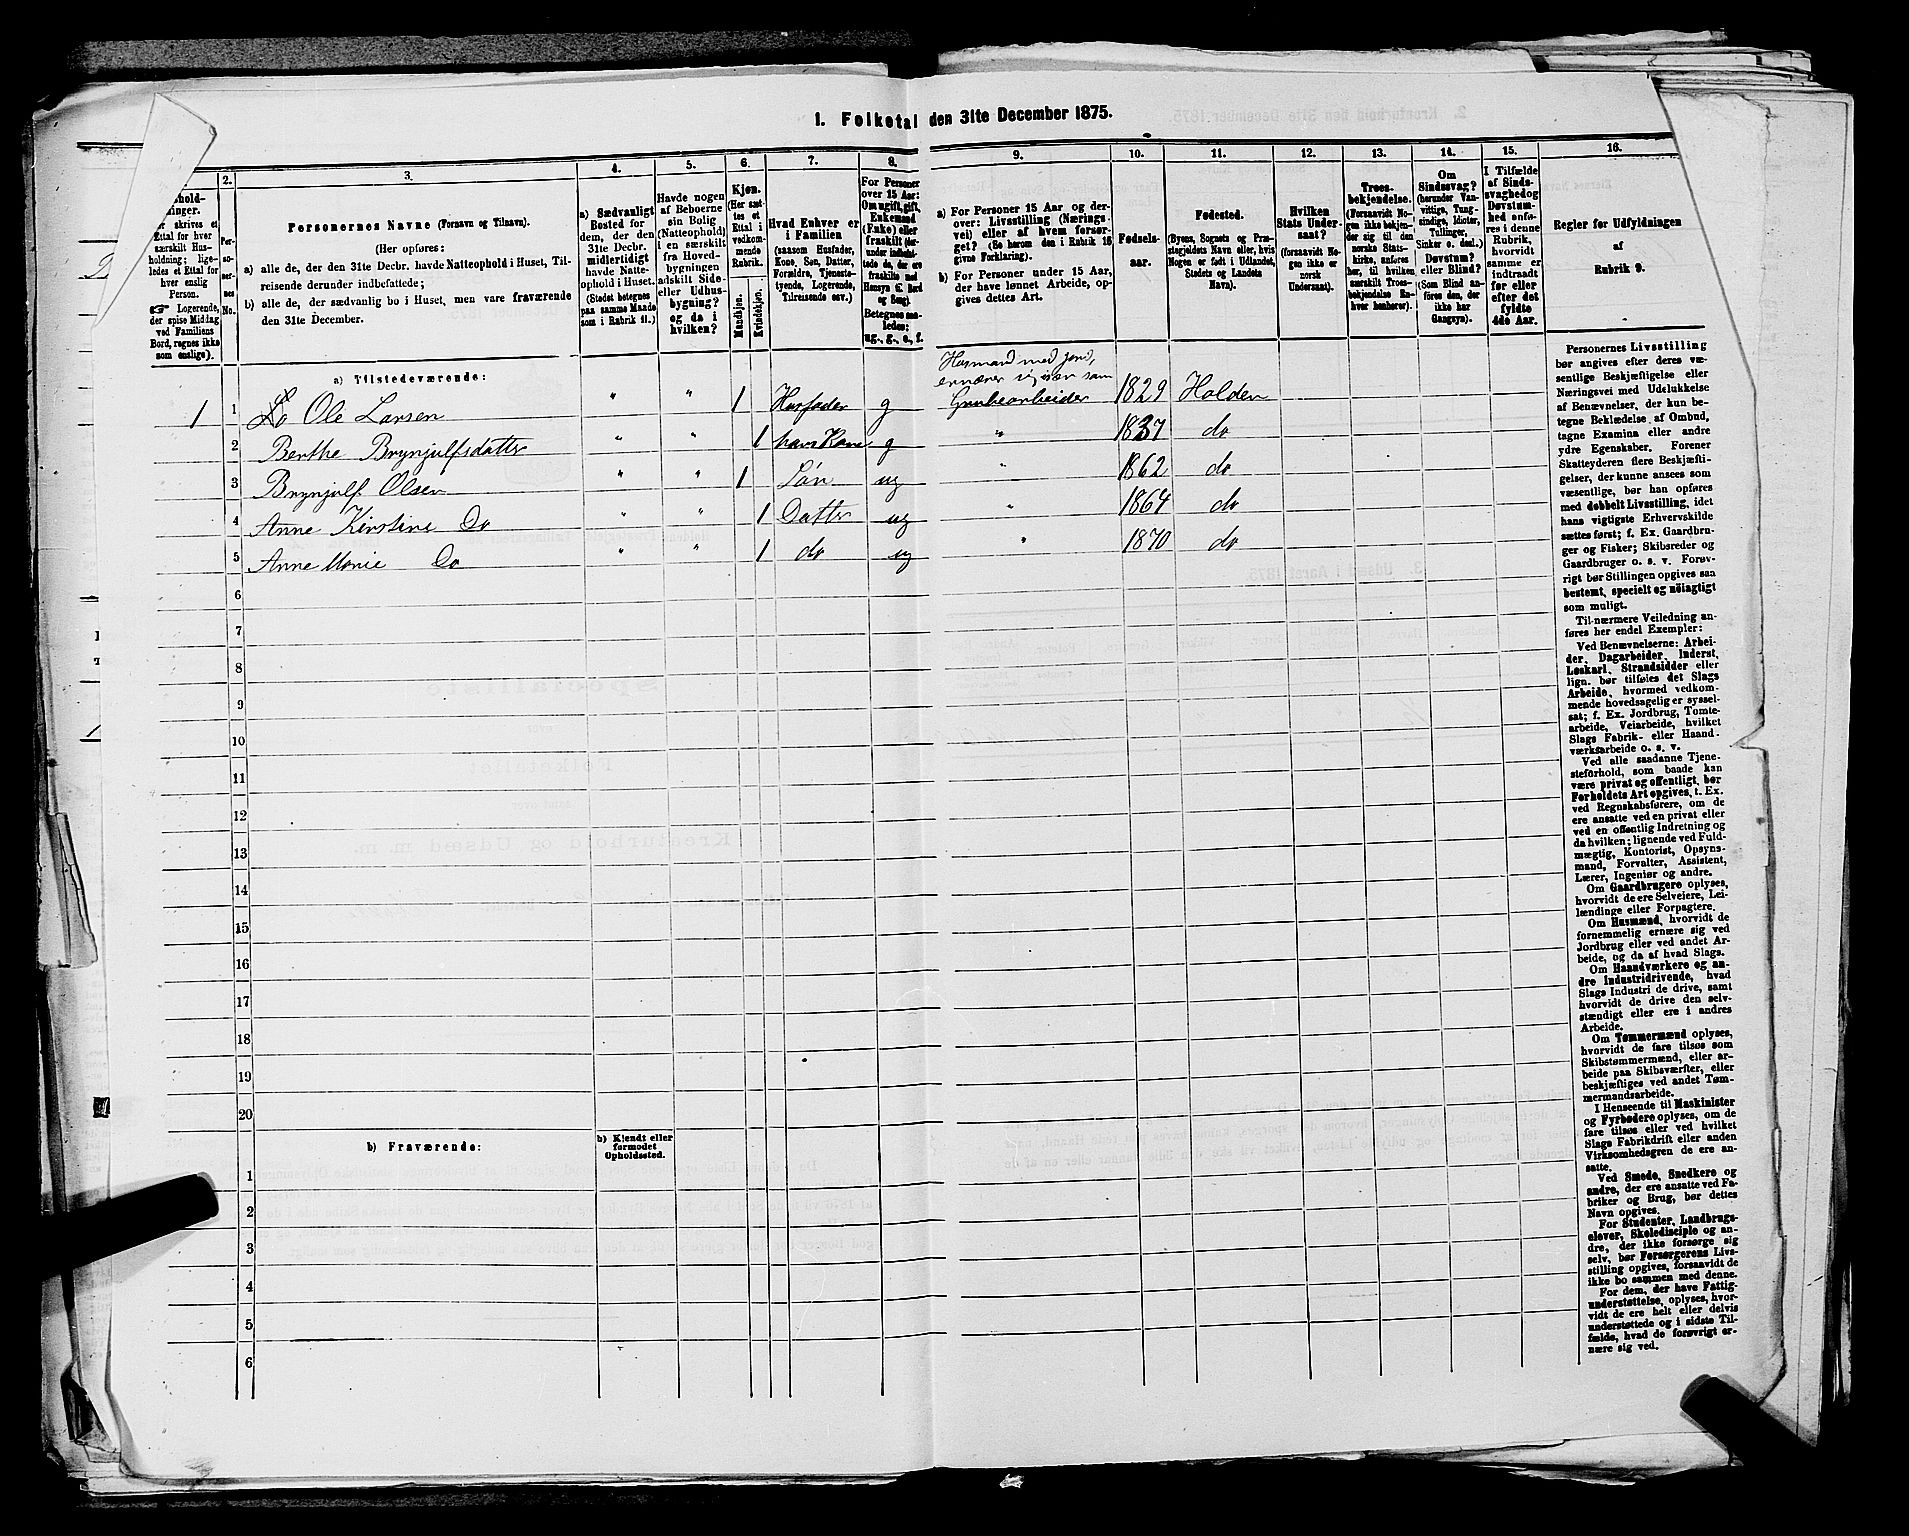 1. Folketal den 31te December 1875.
2.
3.
4.
5.
6.
7.
8.
9.
10.
11.
12.
13.
14.
15.
16.
er skrives et
Ettal for hver
særskilt Hus-
holdning; lige-
ledes et Ettal for
hver enslig
Person.
☞ Logerende,
der spise Middag
ved Familiens
Bord, regnes ikke
som enslige).
No.
Personernes Navne (Fornavn og Tilnavn).
(Her opføres:
a) alle de, der den 31te Decbr. havde Natteophold i Huset, Til-
reisende derunder indbefattede;
b) alle de, der sædvanlig bo i Huset, men vare fraværende
den 31te December.
a) Sædvanligt
Bosted for
dem, der den
31te Decbr.
midlertidigt
havde Natte-
ophold i Huset.
(Stedet betegnes
paa samme Maade
som i Rubrik 11.)
Havde nogen
af Beboerne
sin Bolig
(Natteophold)
i en særskilt
fra Hoved-
bygningen
adskilt Side-
eller Udhus-
bygning? og da i
hvilken?
Kjøn.
(Her sæt-
tes et
Ettal i
vedkom-
mende
Rubrik.
Mandkjøn.
Kvindekjøn.
Hvad Enhver er
i Familien
(saasom Husfader,
Kone, Søn, Datter,
Forældre, Tjeneste-
tyende, Logerende,
Tilreisende osv.)
For Personer
over 15 Aar:
Om ugift, gift,
Enkemand
(Enke) eller
fraskilt (der-
under indbefat-
tede de, der ere
fraskilte med
Hensyn til Bord
og Seng).
Betegnes saa-
ledes:
ug., g., e., f.
a) For Personer 15 Aar og der-
over: Livsstilling (Nærings-
vei) eller af hvem forsør-
get? (Se herom den i Rubrik 16
givne Forklaring).
b) For Personer under 15 Aar,
der have lønnet Arbeide, op-
gives dettes Art.
Fødsels-
aar.
Fødested.
(Byens, Sognets og Præ-
stegjeldets Navn eller, hvis
Nogen er født i Udlandet,
Stedets og Landets
Navn).
Hvilken
Stats Under-
saat?
(forsaavidt No-
gen ikke er
norsk
Undersaat).
Troes-
bekjendelse.
(Forsaavidt No-
gen ikke bekjen-
der sig til den
norske Stats-
kirke, anføres
her, til hvilken
særskilt Troes-
bekjendelse En-
hver henhører).
Om
Sindssvag?
(herunder Van-
vittige, Tung-
sindige, Idioter,
Tullinger,
Sinker o. desl.)
Døvstum?
eller Blind?
(Som Blind an-
føres den, der
ikke har
Gangsyn).
I Tilfælde
af Sinds-
svaghed og
Døvstum-
hed anfø-
res i denne
Rubrik,
hvorvidt
samme er
indtraadt
før eller
efter det
fyldte
4de Aar.
Regler for Udfyldningen
af
Rubrik 9.
a) Tilstedeværende:
Husmand med Jord,
ernærer sig især som
1 1 Ole Larsen " " 1 Husfader g Grubearbeider 1829 Holden
2 Berthe Brynjulfsdatter " " 1 hans Kone g " 1837 do
3 Brynjulf Olsen " " 1 Søn ug " 1862 do
4 Anne Kirstine Do " " 1 Datter ug " 1864 do
5 Anne Marie Do " " 1 do ug " 1870 do
6
7
8
9
10
11
12
13
14
15
16
17
18
19
20
b) Fraværende:
b) Kjendt eller
formodet
Opholdssted.
1
2
3
4
5
6
Personernes Livsstilling
bør angives efter deres væ-
sentlige Beskjæftigelse eller
Næringsvei med Udelukkelse
af Benævnelser, der kun be-
tegne Beklædelse af Ombud,
tagne Examina eller andre
ydre Egenskaber. Forener
Skatteyderen flere Beskjæfti-
gelser, der kunne ansees som
væsentlige, bør han opføres
med dobbelt Livsstilling, idet
hans vigtigste Erhvervskilde
sættes først; f. Ex. Gaardbru-
ger og Fisker; Skibsreder og
Gaardbruger o. s. v. Forøv-
rigt bør Stillingen opgives saa
bestemt, specielt og nöiagtigt
som muligt.
Til nærmere Veiledning an-
føres her endel Exempler:
Ved Benævnelserne: Arbei-
der, Dagarbeider, Inderst,
Løskarl, Strandsidder eller
lign. bør tilføies det Slags
Arbeide, hvormed vedkom-
mende hovedsagelig er syssel-
sat; f. Ex. Jordbrug, Tomte-
arbeide, Veiarbeide, hvilket
Slags Fabrik- eller Haand-
værksarbeide o. s. v.
Ved alle saadanne Tjene-
steforhold, som baade kan
være privat og offentligt, bør
Forholdets Art opgives, t. Ex.
ved Regnskabsførere, om de
ere ansatte ved en privat eller
ved en offentlig Indretning og
da hvilken; lignende ved Fuld-
mægtig, Kontorist, Opsyns-
mand, Forvalter, Assistent,
Lærer, Ingeniør og andre.
Om Gaardbrugere oplyses,
hvorvidt de ere Selveiere, Lei-
lændinge eller Forpagtere.
Om Husmænd, hvorvidt de
fornemmelig ernære sig ved
Jordbrug eller ved andet Ar-
beide, og da af hvad Slags.
Om Haandværkere og an-
dre industridrivende, hvad
Slags Industri de drive, samt
hvorvidt de drive den selv-
stændigt eller ere i andres
Arbeide.
Om Tømmermænd oplyses,
hvorvidt de fare tilsøs som
Skibstømmermænd, eller ar-
beide paa Skibsværfter, eller
beskjæftiges ved andet Tøm-
mermandsarbeide.
I Henseende til Maskinister
og Fyrbødere oplyses, om de
fare tilsøs eller ved hvilket
Slags Fabrikdrift eller anden
Virksomhedsgren de ere an-
satte.
Ved Smede, Snedkere og
andre, der ere ansatte ved Fa-
briker og Brug, bør dettes
Navn opgives.
For Studenter, Landbrugs-
elever, Skoledisciple og an-
dre, der ikke forsørge sig
selv, bør Forsørgerens Livs-
stilling opgives, forsaavidt de
ikke bo sammen med denne.
For dem, der have Fattig-
understøttelse, oplyses, hvor-
vidt de ere helt eller delvis
understøttede og i sidste Til-
fælde, hvad de forøvrigt er-
nære sig ved.